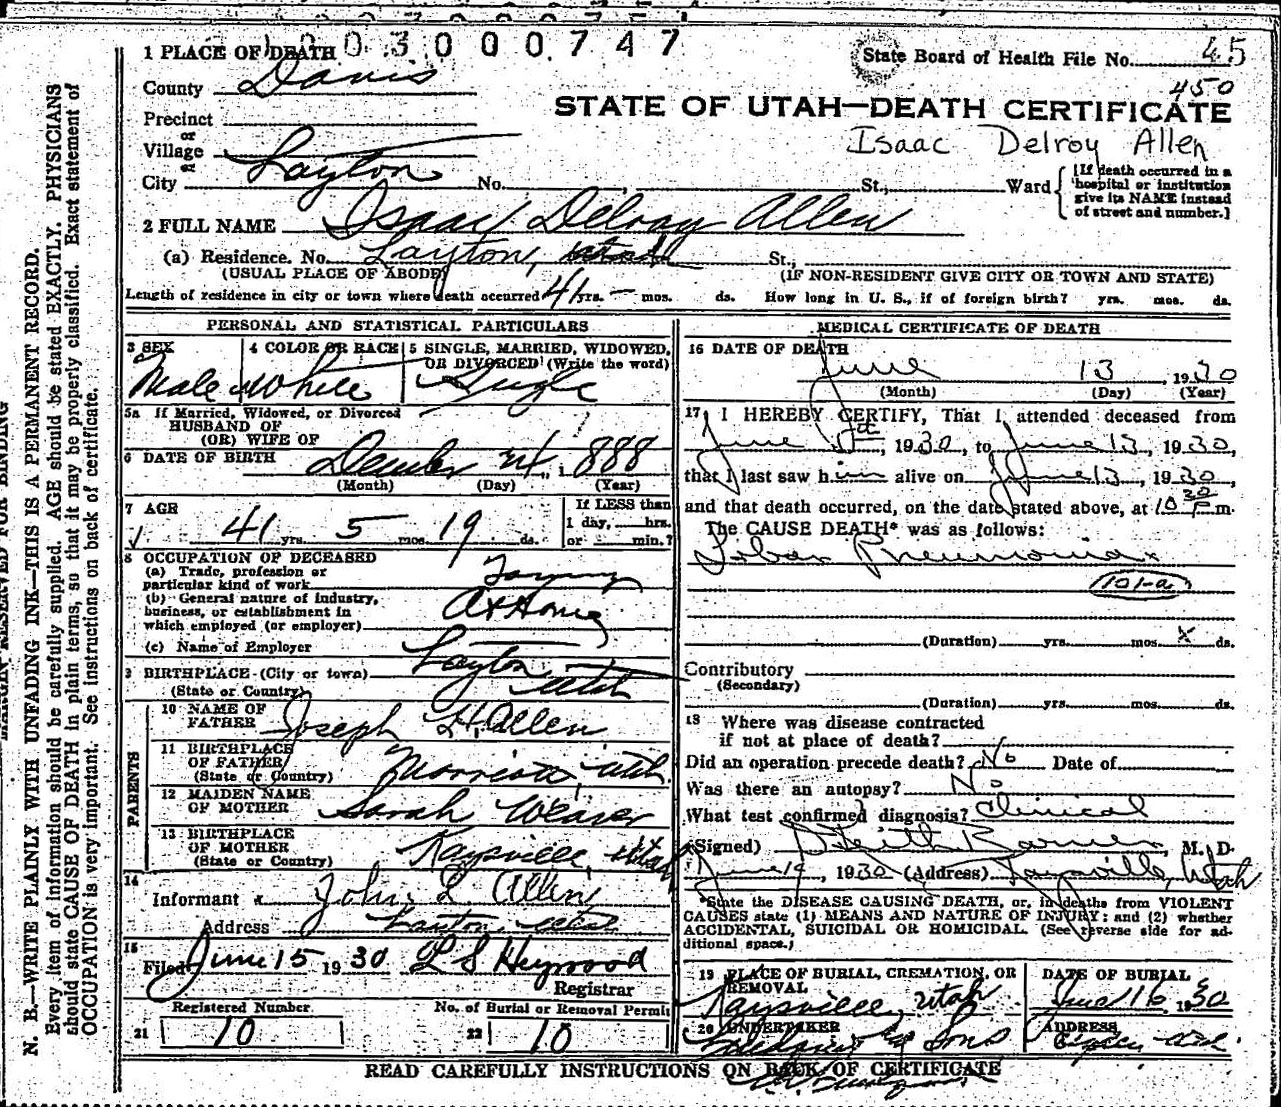 0 3 0 0 0 7 4 7
1 PLACE OF DEATH
State Board of Health File No. 45
County Davis
450
STATE OF UTAH—DEATH CERTIFICATE
Precinct
or
Village
or
Isaac Delroy Allen
City Layton No. St., Ward
[If death occurred in a hospital or institution give its NAME instead of street and number.]
2 FULL NAME Isaac Delroy Allen
(a) Residence. No. Layton, Utah St.,
(USUAL PLACE OF ABODE) (IF NON-RESIDENT GIVE CITY OR TOWN AND STATE)
Length of residence in city or town where death occurred 41 yrs. — mos. ds. How long in U. S., if of foreign birth? yrs. mos. ds.
PERSONAL AND STATISTICAL PARTICULARS
3 SEX
Male
4 COLOR OR RACE
White
5 SINGLE, MARRIED, WIDOWED, OR DIVORCED (Write the word)
Single
5a If Married, Widowed, or Divorced
HUSBAND OF
(OR) WIFE OF
6 DATE OF BIRTH December 24, 1888
(Month) (Day) (Year)
7 AGE
41 yrs. 5 mos. 19 ds.
If LESS than
1 day, hrs.
or min.?
8 OCCUPATION OF DECEASED
(a) Trade, profession or
particular kind of work
(b) General nature of industry,
business, or establishment in
which employed (or employer) At Home
(c) Name of Employer
9 BIRTHPLACE (City or town) Layton
(State or Country) Utah
PARENTS
10 NAME OF
FATHER Joseph H. Allen
11 BIRTHPLACE
OF FATHER
(State or Country) Utah
12 MAIDEN NAME
OF MOTHER Sarah Weaver
13 BIRTHPLACE
OF MOTHER
(State or Country) Kaysville, Utah
14
Informant x John L. Allen
Address Layton Utah
15
Filed June 15 1930 L S Heywood
Registrar
Registered Number
21 10
No. of Burial or Removal Permit
22 10
MEDICAL CERTIFICATE OF DEATH
16 DATE OF DEATH
June 13, 1930
(Month) (Day) (Year)
17 I HEREBY CERTIFY, That I attended deceased from
June, 1930, to June 13, 1930,
that I last saw him alive on June 13, 1930,
and that death occurred, on the date stated above, at 10 30 P m.
The CAUSE DEATH* was as follows:
Lobar Pneumonia
101-a
(Duration) yrs. mos. x ds.
Contributory
(Secondary)
(Duration) yrs. mos. ds.
18 Where was disease contracted
if not at place of death?
Did an operation precede death? No Date of
Was there an autopsy? No
What test confirmed diagnosis? Clinical
(Signed) M. D.
June 14, 1930 (Address) Kaysville, Utah
*State the DISEASE CAUSING DEATH, or, in deaths from VIOLENT
CAUSES state (1) MEANS AND NATURE OF INJURY; and (2) whether
ACCIDENTAL, SUICIDAL OR HOMICIDAL. (See reverse side for ad-
ditional space.)
19 PLACE OF BURIAL, CREMATION, OR
REMOVAL
Kaysville, Utah
DATE OF BURIAL
June 16 1930
20 UNDERTAKER
& Sons
ADDRESS
READ CAREFULLY INSTRUCTIONS ON BACK OF CERTIFICATE
MARGIN RESERVED FOR BINDING
N. B.—WRITE PLAINLY WITH UNFADING INK—THIS IS A PERMANENT RECORD.
Every item of information should be carefully supplied. AGE should be stated EXACTLY. PHYSICIANS
should state CAUSE OF DEATH in plain terms, so that it may be properly classified. Exact statement of
OCCUPATION is very important. See instructions on back of certificate.